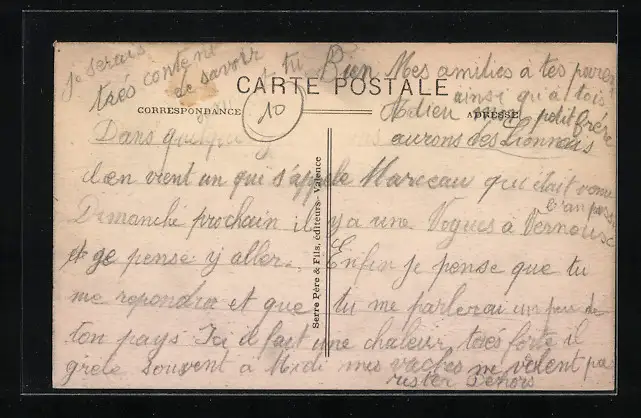 je serais
très content
de savoir
si tu
Bien Mes amitiés à tes parents
ainsi qu'à tois
Adieu petit frère
CARTE POSTALE
CORRESPONDANCE
10
ADRESSE
Dans quelque aurons des Lionnais
il en vient un qui s'appele Marceau qui était venu
l'an passé
Dimanche prochain il y a une Vogues à Vernoux
et ge pense y aller. Enfin je pense que tu
me repondra et que tu me parlerai un peu de
ton pays Ici il fait une chaleur, très forte il
grele souvent à Midi mes vaches ne veulent pas
rester dehors
Serre Père & Fils, éditeurs - Valence